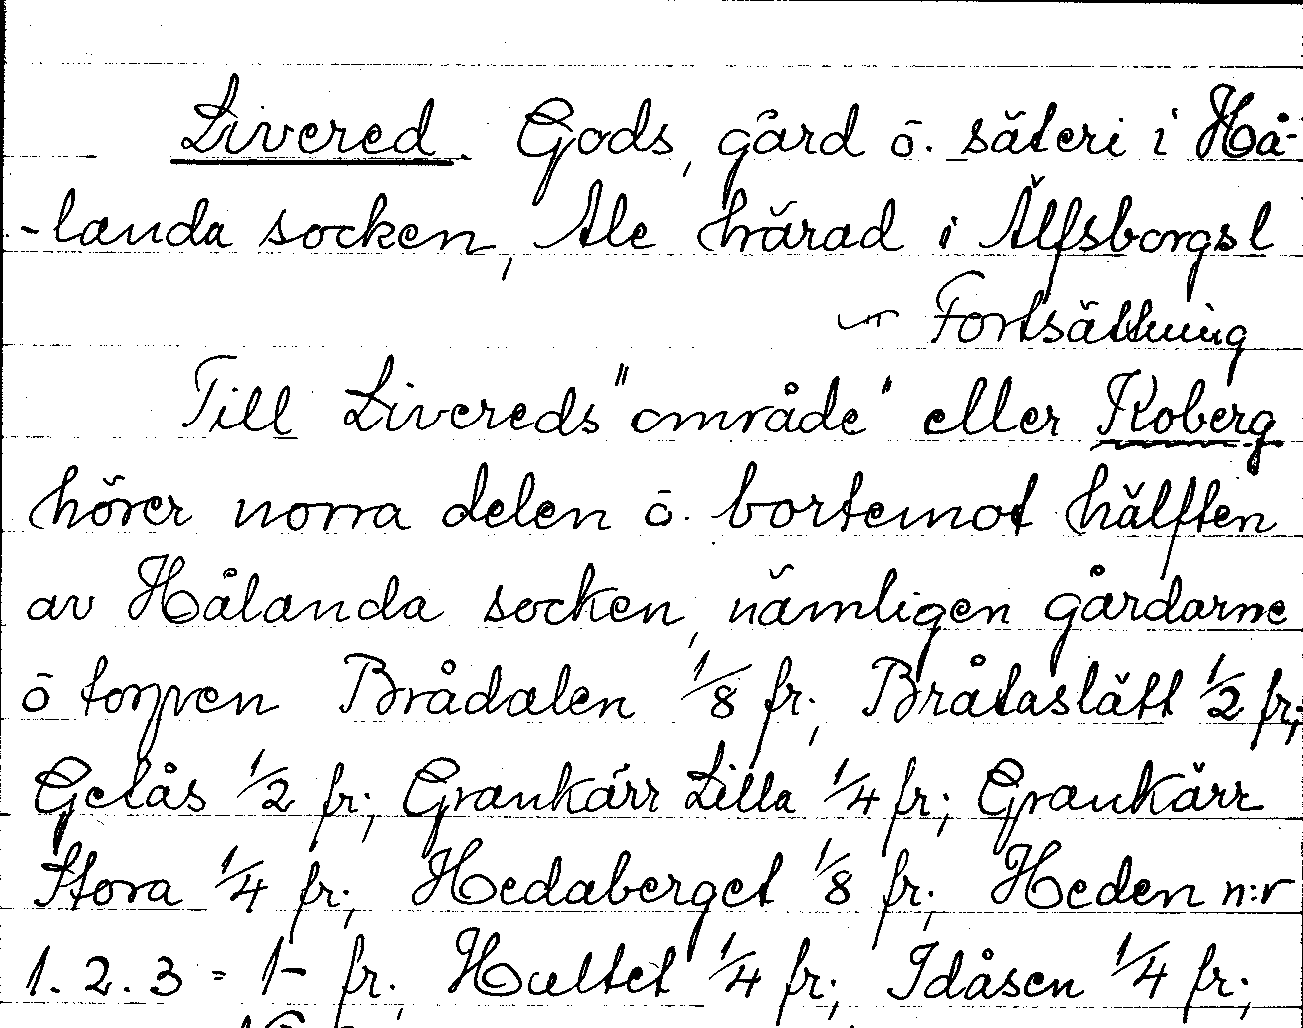 Livered. Gods, gård ō. säteri i Hå-
-landa socken, Ale härad i Älfsborgsl
Fortsättning
Till Livereds "område" eller Koberg
hörer norra delen ō. bortemot hälften
av Hålanda socken, nämligen gårdarne
ō torpen Brådalen 1/8 fr; Bråtaslätt 1/2 fr;
Gelås 1/2 fr; Grankärr Lilla 1/4 fr; Grankärr
Stora 1/4 fr; Hedaberget 1/8 fr; Heden n:r
1. 2. 3 = 1- fr; Hultet 1/4 fr; Idåsen 1/4 fr;